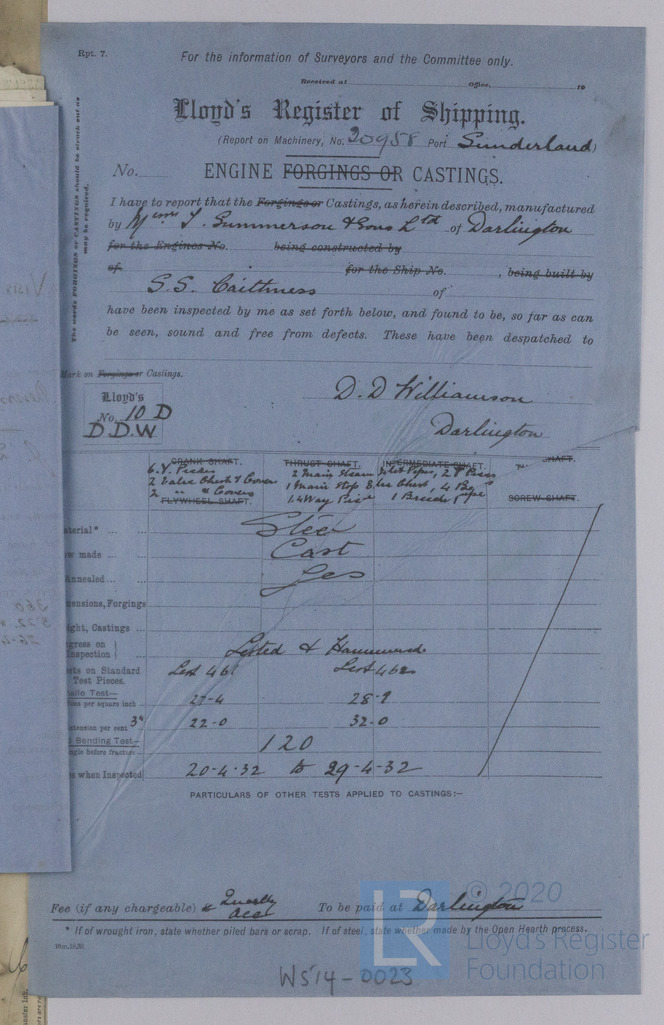 Rpt. 7.
For the information of Surveyors and the Committee only.
Received at Office, 19
Lloyd's Register of Shipping.
(Report on Machinery, No. 20958 Port Sunderland)
No. ENGINE FORGINGS OR CASTINGS.
The words FORGINGS or CASTINGS should be struck out as
may be required.
I have to report that the Forgings or Castings, as herein described, manufactured
by Messrs T. Summerson & Sons Ltd of Darlington
for the Engines No. being constructed by
of for the Ship No. , being built by
S.S. Caithness of
have been inspected by me as set forth below, and found to be, so far as can
be seen, sound and free from defects. These have been despatched to
Mark on Forgings or Castings.
Lloyd's
No. 10 D
D.D.W
D. D Williamson
Darlington
CRANK SHAFT. THRUST SHAFT. INTERMEDIATE SHAFT. SHAFT.
6 Y. Pieces 2 Main Steam Inlet Pipes, 2 Y Pieces
2 Valve Chests & Covers 1 Main Stop Valve Chest, 4
2 " " & Covers 1. 4 Way Piece 1 Breeches Pipe
FLYWHEEL SHAFT. SCREW SHAFT.
aterial* Steel
ow made Cast
Annealed Yes
ensions, Forgings
ght, Castings
gress on
Inspection Tested & Hammered
sts on Standard
Test Pieces. Test 461 Test 462
sile Test—
Tons per square inch 27-4 28-9
xtension per cent 3" 22-0 32-0
Bending Test—
ngle before fracture 120
e when Inspected 20-4-32 to 29-4-32
PARTICULARS OF OTHER TESTS APPLIED TO CASTINGS:—
Fee (if any chargeable) Quartly
Acct To be paid at Darlington
* If of wrought iron, state whether piled bars or scrap. If of steel, state whether made by the Open Hearth process.
W514-0023
© 2020
LR
Lloyd's Register
Foundation